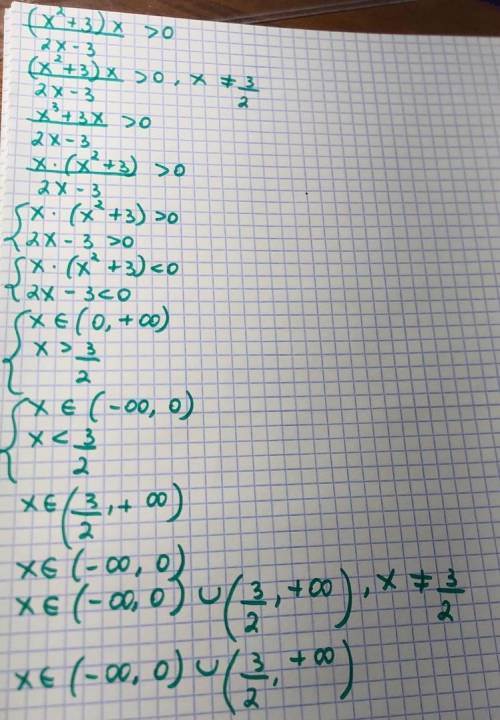 (x²+3)x / 2x-3 >0
(x²+3)x / 2x-3 >0, x ≠ 3/2
x³+3x / 2x-3 >0
x·(x²+3) / 2x-3 >0
{ x·(x²+3)>0
2x-3>0
{ x·(x²+3)<0
2x-3<0
{ x∈(0,+∞)
x > 3/2
{ x∈(-∞,0)
x < 3/2
x∈(3/2,+∞)
x∈(-∞,0)
x∈(-∞,0)∪(3/2,+∞), x ≠ 3/2
x∈(-∞,0)∪(3/2,+∞)